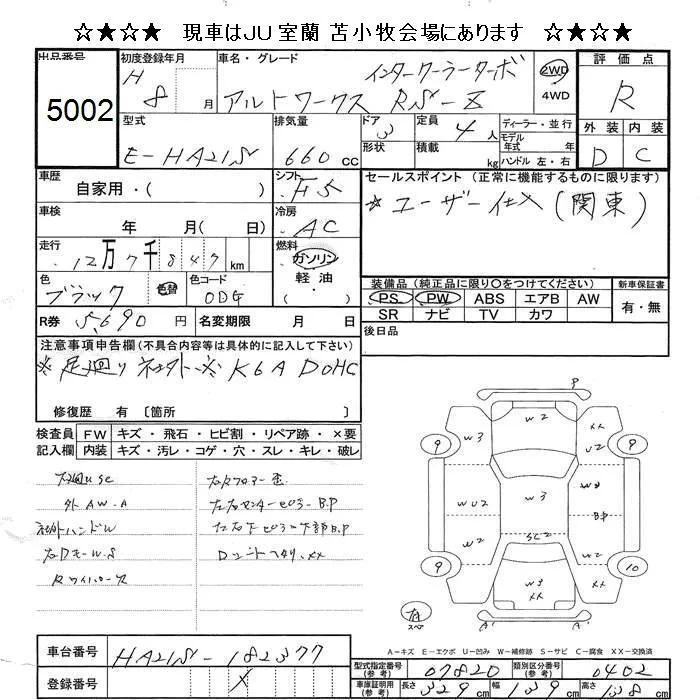 ☆★☆★ 現車はJU室蘭 苫小牧会場にあります ☆★☆★
出品番号
5002
初度登録年月
H 8 月
車名・グレード
インタークーラーターボ
アルトワークス RS-Z
2WD
4WD
評価点
R
型式
E-HA21S
排気量
660 cc
ドア
3
形状
定員
4人
積載
kg
ディーラー・並行
モデル年式 年式
ハンドル 左・右
外装 内装
D C
車歴
自家用・( )
シフト
H5
セールスポイント (正常に機能するものに限ります)
☆ユーザー仕入(関東)
車検
年 月( 日)
冷房
AC
走行
12万7千847km
燃料
ガソリン
軽油
・
色
ブラック
色替
色コード
0DG
装備品(純正品に限り○をつけてください)
新車保証書
PS PW ABS エアB AW
SR ナビ TV カワ
有・無
R券 5,690円
名変期限 月 日
後日品
注意事項申告欄(不具合内容等は具体的に記入して下さい)
※足廻り社外 ※K6A DOHC
修復歴 有〔箇所
検査員記入欄
FW キズ・飛石・ヒビ割・リペア跡・×要
内装 キズ・汚レ・コゲ・穴・スレ・キレ・破レ
外AW.A
社外ハンドル
P
W2
W3
XX
U2
9
9
WU2
W3
B.P
W2
SC2
W2
9
10
W3
XX
XX
有
スペ
A
A
A-キズ E-エクボ U-凹み W-補修跡 S-サビ C-腐食 XX-交換済
車台番号
HA21S-182377
登録番号
X
型式指定番号(参考)
07820
類別区分番号(参考)
0402
車庫証明用(参考)
長さ 329cm
幅 139cm
高さ 138cm